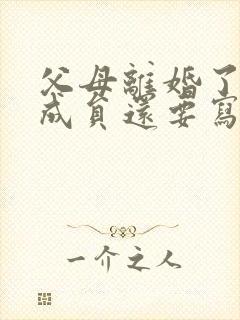 父母離婚了
成員還要寫
一介之人